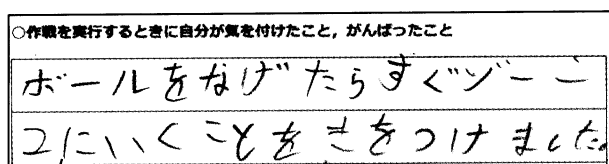 ○作戦を実行するときに自分が気を付けたこと,がんばったこと
ボールをなげたらすぐゾーン
2にいくことをきをつけました。